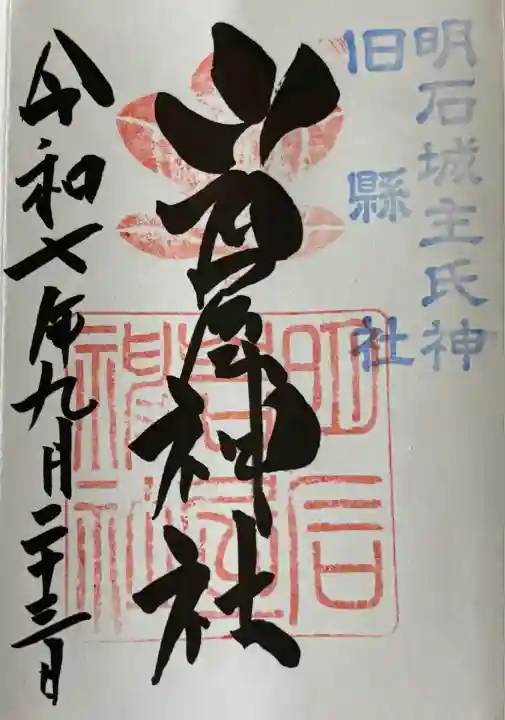 明石城主氏神
旧縣社
岩屋神社
明石岩屋神社
令和七年九月二十三日